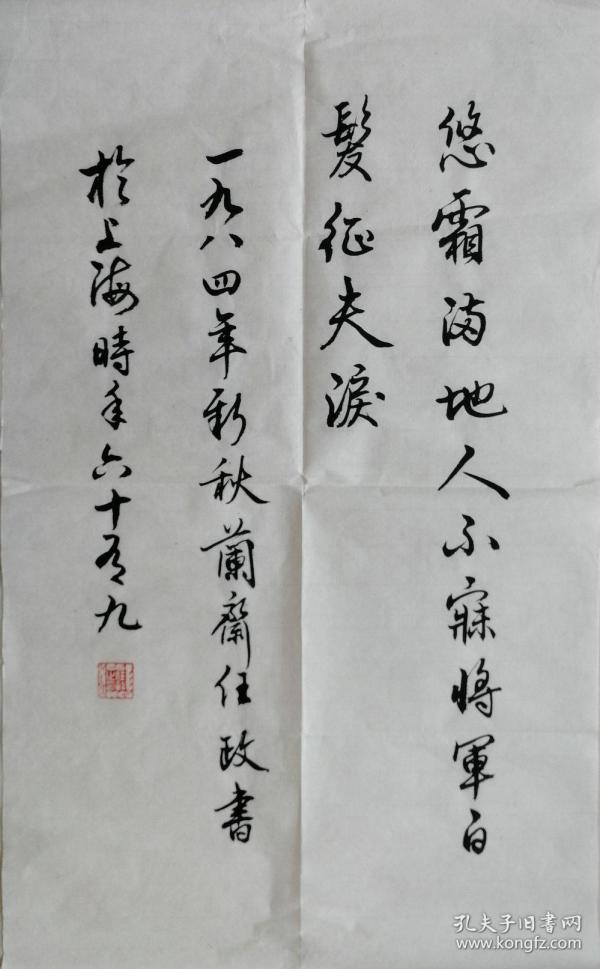 悠霜满地人不寐將軍白
髮征夫淚
一九八四年新秋蘭齋任政書
於上海時年六十有九
孔夫子旧書网
www.kongfz.com